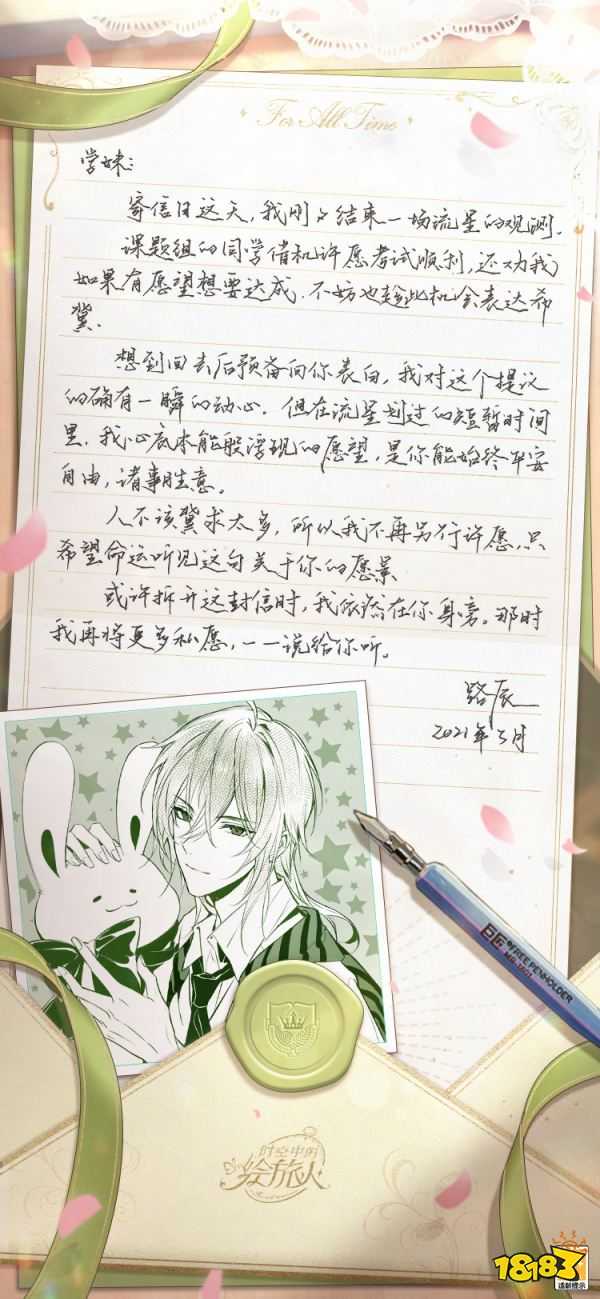 For All Time
学妹：
寄信日这天，我刚刚结束一场流星的观测。
课题组的同学借机许愿考试顺利，还劝我
如果有愿望想要达成，不妨也趁此机会表达希
冀。
想到回去后预备向你表白，我对这个提议
的确有一瞬的动心。但在流星划过的短暂时间
里，我心底本能般浮现的愿望，是你能始终平安
自由，诸事胜意。
人不该冀求太多，所以我不再另行许愿，只
希望命运听见这句关于你的愿景
或许拆开这封信时，我依然在你身旁。那时
我再将更多私愿，一一说给你听。
路辰
2021年3月
FREE PENHOLDER
时空中的
绘旅人
18183